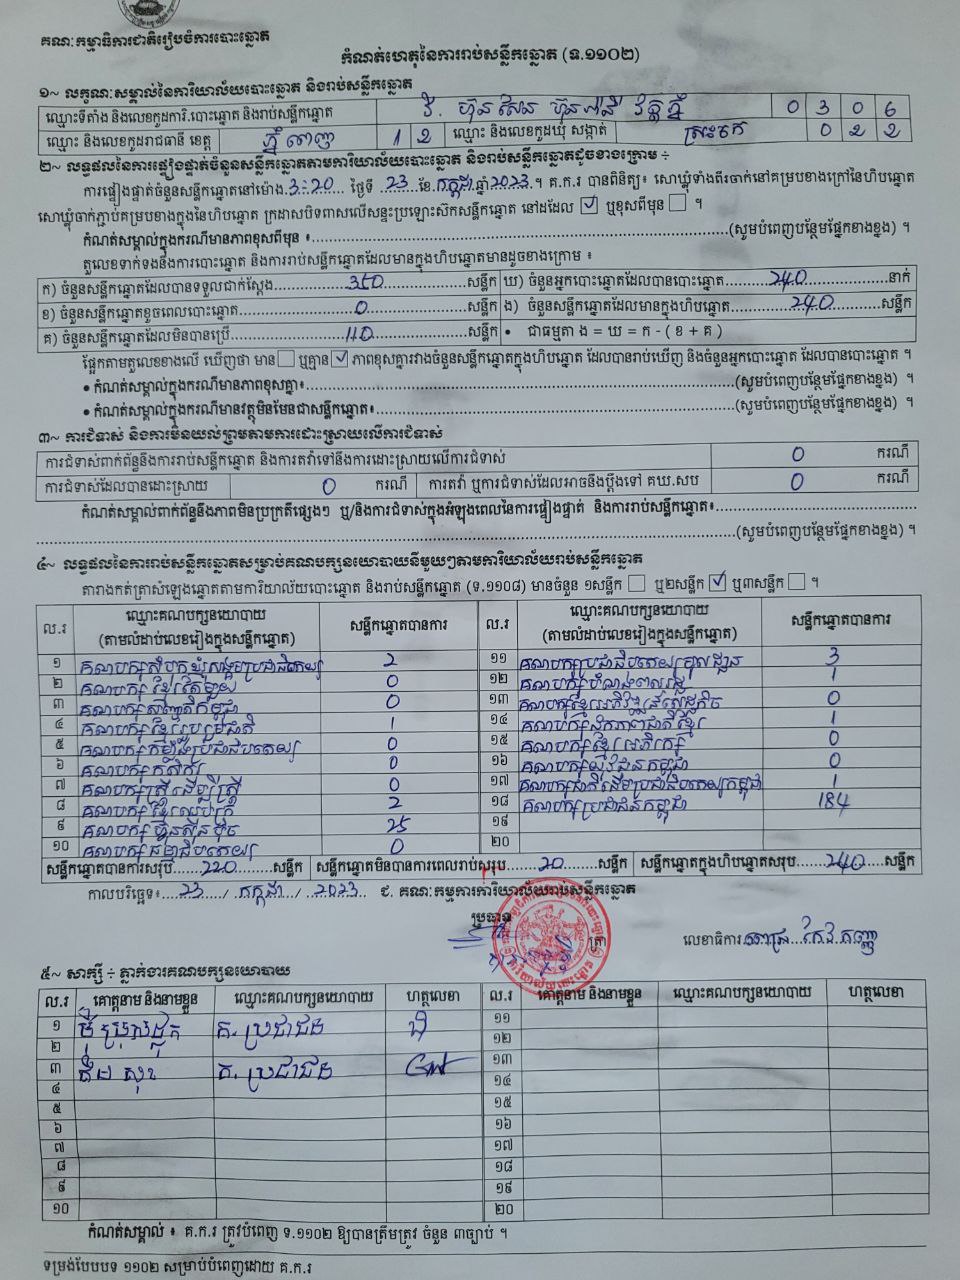 គណៈកម្មាធិការជាតិរៀបចំការបោះឆ្នោត
កំណត់ហេតុនៃការរាប់សន្លឹកឆ្នោត (ទ.១១០២)
១~ លក្ខណៈសម្គាល់នៃការិយាល័យបោះឆ្នោត និងរាប់សន្លឹកឆ្នោត
ឈ្មោះទីតាំង និងលេខកូដការិ.បោះឆ្នោត និងរាប់សន្លឹកឆ្នោត វិ. ហ៊ុន សែន ប៊ុនរ៉ានី វត្តភ្នំ 0 3 0 6
ឈ្មោះ និងលេខកូដរាជធានី ខេត្ត ភ្នំពេញ 1 2 ឈ្មោះ និងលេខកូដឃុំ សង្កាត់ ស្រះចក 0 2 2
២~ លទ្ធផលនៃការផ្ទៀងផ្ទាត់ចំនួនសន្លឹកឆ្នោតតាមការិយាល័យបោះឆ្នោត និងរាប់សន្លឹកឆ្នោតដូចខាងក្រោម ÷
ការផ្ទៀងផ្ទាត់ចំនួនសន្លឹកឆ្នោតនៅម៉ោង 3:20 ថ្ងៃទី 23 ខែ កក្កដា ឆ្នាំ 2023 ។ គ.ក.រ បានពិនិត្យ៖ សោឃ្លុំទាំងពីរចាក់នៅគម្របខាងក្រៅនៃហិបឆ្នោត
សោឃ្លុំចាក់ភ្ជាប់គម្របខាងក្នុងនៃហិបឆ្នោត ក្រដាសបិទពាសលើសន្ទះប្រឡោះស៊កសន្លឹកឆ្នោត នៅដដែល ☑ ឬខុសពីមុន ☐ ។
កំណត់សម្គាល់ក្នុងករណីមានភាពខុសពីមុន ៖ (សូមបំពេញបន្ថែមផ្នែកខាងខ្នង) ។
តួលេខទាក់ទងនឹងការបោះឆ្នោត និងការរាប់សន្លឹកឆ្នោតដែលមានក្នុងហិបឆ្នោតមានដូចខាងក្រោម ៖
ក) ចំនួនសន្លឹកឆ្នោតដែលបានទទួលជាក់ស្តែង 350 សន្លឹក ឃ) ចំនួនអ្នកបោះឆ្នោតដែលបានបោះឆ្នោត 240 នាក់
ខ) ចំនួនសន្លឹកឆ្នោតខូចពេលបោះឆ្នោត 0 សន្លឹក ង) ចំនួនសន្លឹកឆ្នោតដែលមានក្នុងហិបឆ្នោត 240 សន្លឹក
គ) ចំនួនសន្លឹកឆ្នោតដែលមិនបានប្រើ 110 សន្លឹក • ជាធម្មតា ង = ឃ = ក - ( ខ + គ )
ផ្អែកតាមតួលេខខាងលើ ឃើញថា មាន ☐ ឬគ្មាន ☑ ភាពខុសគ្នារវាងចំនួនសន្លឹកឆ្នោតក្នុងហិបឆ្នោត ដែលបានរាប់ឃើញ និងចំនួនអ្នកបោះឆ្នោត ដែលបានបោះឆ្នោត ។
• កំណត់សម្គាល់ក្នុងករណីមានភាពខុសគ្នា៖ (សូមបំពេញបន្ថែមផ្នែកខាងខ្នង) ។
• កំណត់សម្គាល់ក្នុងករណីមានវត្ថុមិនមែនជាសន្លឹកឆ្នោត៖ (សូមបំពេញបន្ថែមផ្នែកខាងខ្នង) ។
៣~ ការជំទាស់ និងការមិនយល់ព្រមតាមការដោះស្រាយលើការជំទាស់
ការជំទាស់ពាក់ព័ន្ធនឹងការរាប់សន្លឹកឆ្នោត និងការតវ៉ាទៅនឹងការដោះស្រាយលើការជំទាស់ 0 ករណី
ការជំទាស់ដែលបានដោះស្រាយ 0 ករណី ការតវ៉ា ឬការជំទាស់ដែលអាចនឹងប្តឹងទៅ គឃ.សប 0 ករណី
កំណត់សម្គាល់ពាក់ព័ន្ធនឹងភាពមិនប្រក្រតីផ្សេងៗ ឬ/និងការជំទាស់ក្នុងអំឡុងពេលនៃការផ្ទៀងផ្ទាត់ និងការរាប់សន្លឹកឆ្នោត៖
(សូមបំពេញបន្ថែមផ្នែកខាងខ្នង) ។
៤~ លទ្ធផលនៃការរាប់សន្លឹកឆ្នោតសម្រាប់គណបក្សនយោបាយនីមួយៗតាមការិយាល័យរាប់សន្លឹកឆ្នោត
តារាងកត់ត្រាសំឡេងឆ្នោតតាមការិយាល័យបោះឆ្នោត និងរាប់សន្លឹកឆ្នោត (ទ.១១០៨) មានចំនួន ១សន្លឹក ☐ ឬ២សន្លឹក ☑ ឬ៣សន្លឹក ☐ ។
ល.រ ឈ្មោះគណបក្សនយោបាយ (តាមលំដាប់លេខរៀងក្នុងសន្លឹកឆ្នោត) សន្លឹកឆ្នោតបានការ ល.រ ឈ្មោះគណបក្សនយោបាយ (តាមលំដាប់លេខរៀងក្នុងសន្លឹកឆ្នោត) សន្លឹកឆ្នោតបានការ
១ គណបក្សសំបុកឃ្មុំសង្គមប្រជាធិបតេយ្យ 2 ១១ គណបក្សប្រជាធិបតេយ្យមូលដ្ឋាន 3
២ គណបក្សខ្មែរតែមួយ 0 ១២ គណបក្សបំណងពលរដ្ឋ 1
៣ គណបក្សសញ្ជាតិកម្ពុជា 0 ១៣ គណបក្សខ្មែរអភិវឌ្ឍន៍សេដ្ឋកិច្ច 0
៤ គណបក្សខ្មែររួបរួមជាតិ 1 ១៤ គណបក្សឯកភាពជាតិខ្មែរ 1
៥ គណបក្សកម្លាំងប្រជាធិបតេយ្យ 0 ១៥ គណបក្សខ្មែរអភិរក្ស 0
៦ គណបក្សកសិករ 0 ១៦ គណបក្សយុវជនកម្ពុជា 0
៧ គណបក្សស្ត្រីដើម្បីស្ត្រី 0 ១៧ គណបក្សជាតិដើមប្រជាធិបតេយ្យកម្ពុជា 1
៨ គណបក្សខ្មែរឈប់ក្រ 2 ១៨ គណបក្សប្រជាជនកម្ពុជា 184
៩ គណបក្សហ៊្វុនស៊ិនប៉ិច 25 ១៩
១០ គណបក្សធម្មាធិបតេយ្យ 0 ២០
សន្លឹកឆ្នោតបានការសរុប 220 សន្លឹក សន្លឹកឆ្នោតមិនបានការពេលរាប់សរុប 20 សន្លឹក សន្លឹកឆ្នោតក្នុងហិបឆ្នោតសរុប 240 សន្លឹក
កាលបរិច្ឆេទ៖ 23 / កក្កដា / 2023 ជ. គណៈកម្មការការិយាល័យរាប់សន្លឹកឆ្នោត
ប្រធាន (ត្រា)
លេខាធិការ
៥~ សាក្សី ÷ ភ្នាក់ងារគណបក្សនយោបាយ
ល.រ គោត្តនាម និងនាមខ្លួន ឈ្មោះគណបក្សនយោបាយ ហត្ថលេខា ល.រ គោត្តនាម និងនាមខ្លួន ឈ្មោះគណបក្សនយោបាយ ហត្ថលេខា
១ គ. ប្រជាជន ១១
២ ១២
៣ គ. ប្រជាជន ១៣
៤ ១៤
៥ ១៥
៦ ១៦
៧ ១៧
៨ ១៨
៩ ១៩
១០ ២០
កំណត់សម្គាល់ ៖ គ.ក.រ ត្រូវបំពេញ ទ.១១០២ ឱ្យបានត្រឹមត្រូវ ចំនួន ៣ច្បាប់ ។
ទម្រង់បែបបទ ១១០២ សម្រាប់បំពេញដោយ គ.ក.រ